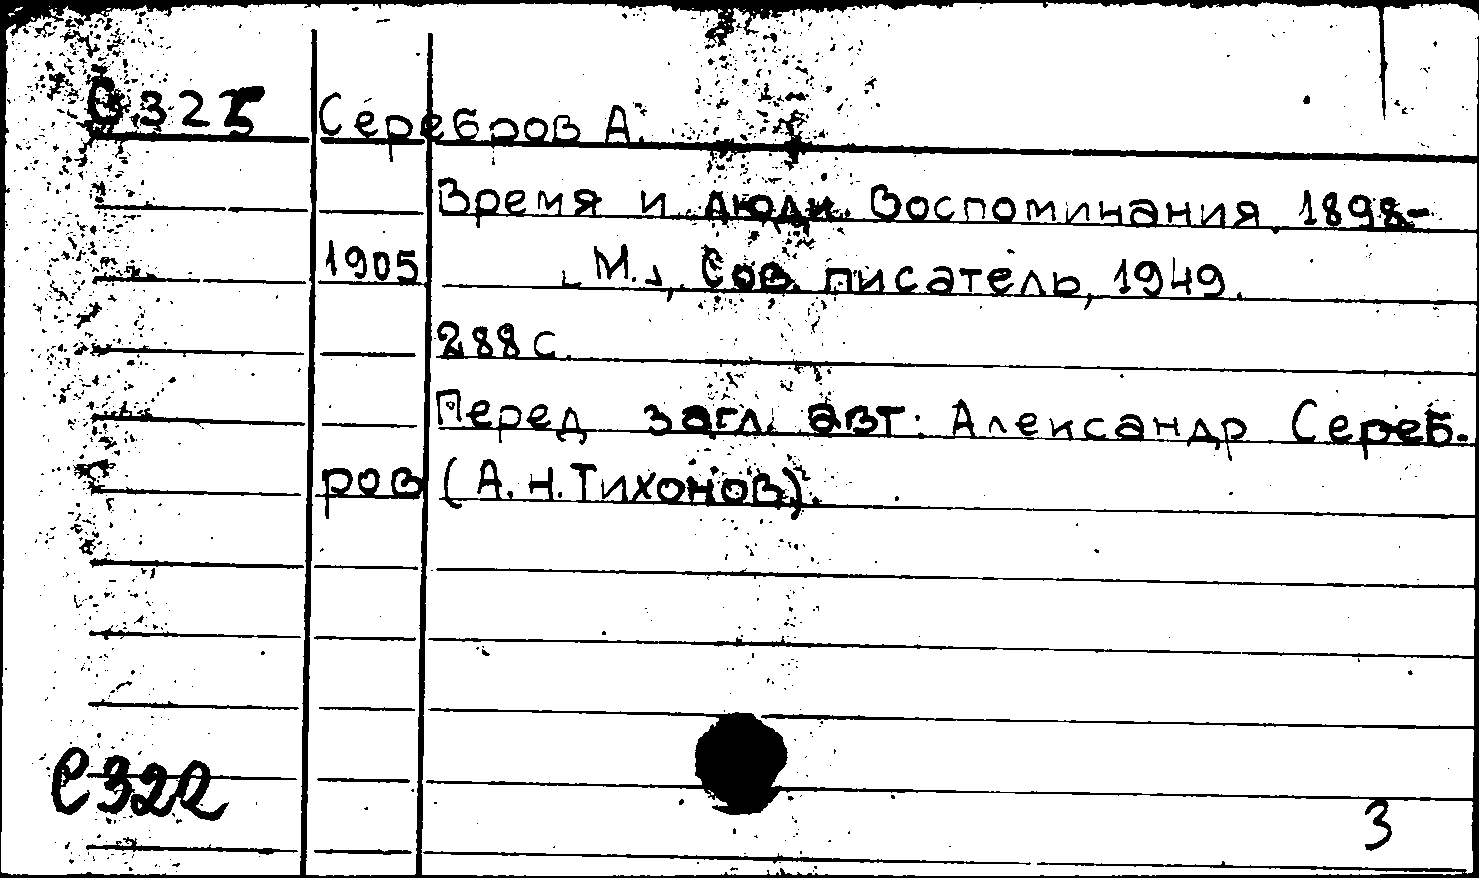 Серебров А.
Время и люди. Воспоминания 1898-
1905 [М.], Сов. писатель, 1949.
288 с.
Перед загл. авт: Александр Сереб.
ров (А.Н.Тихонов).
С322
3